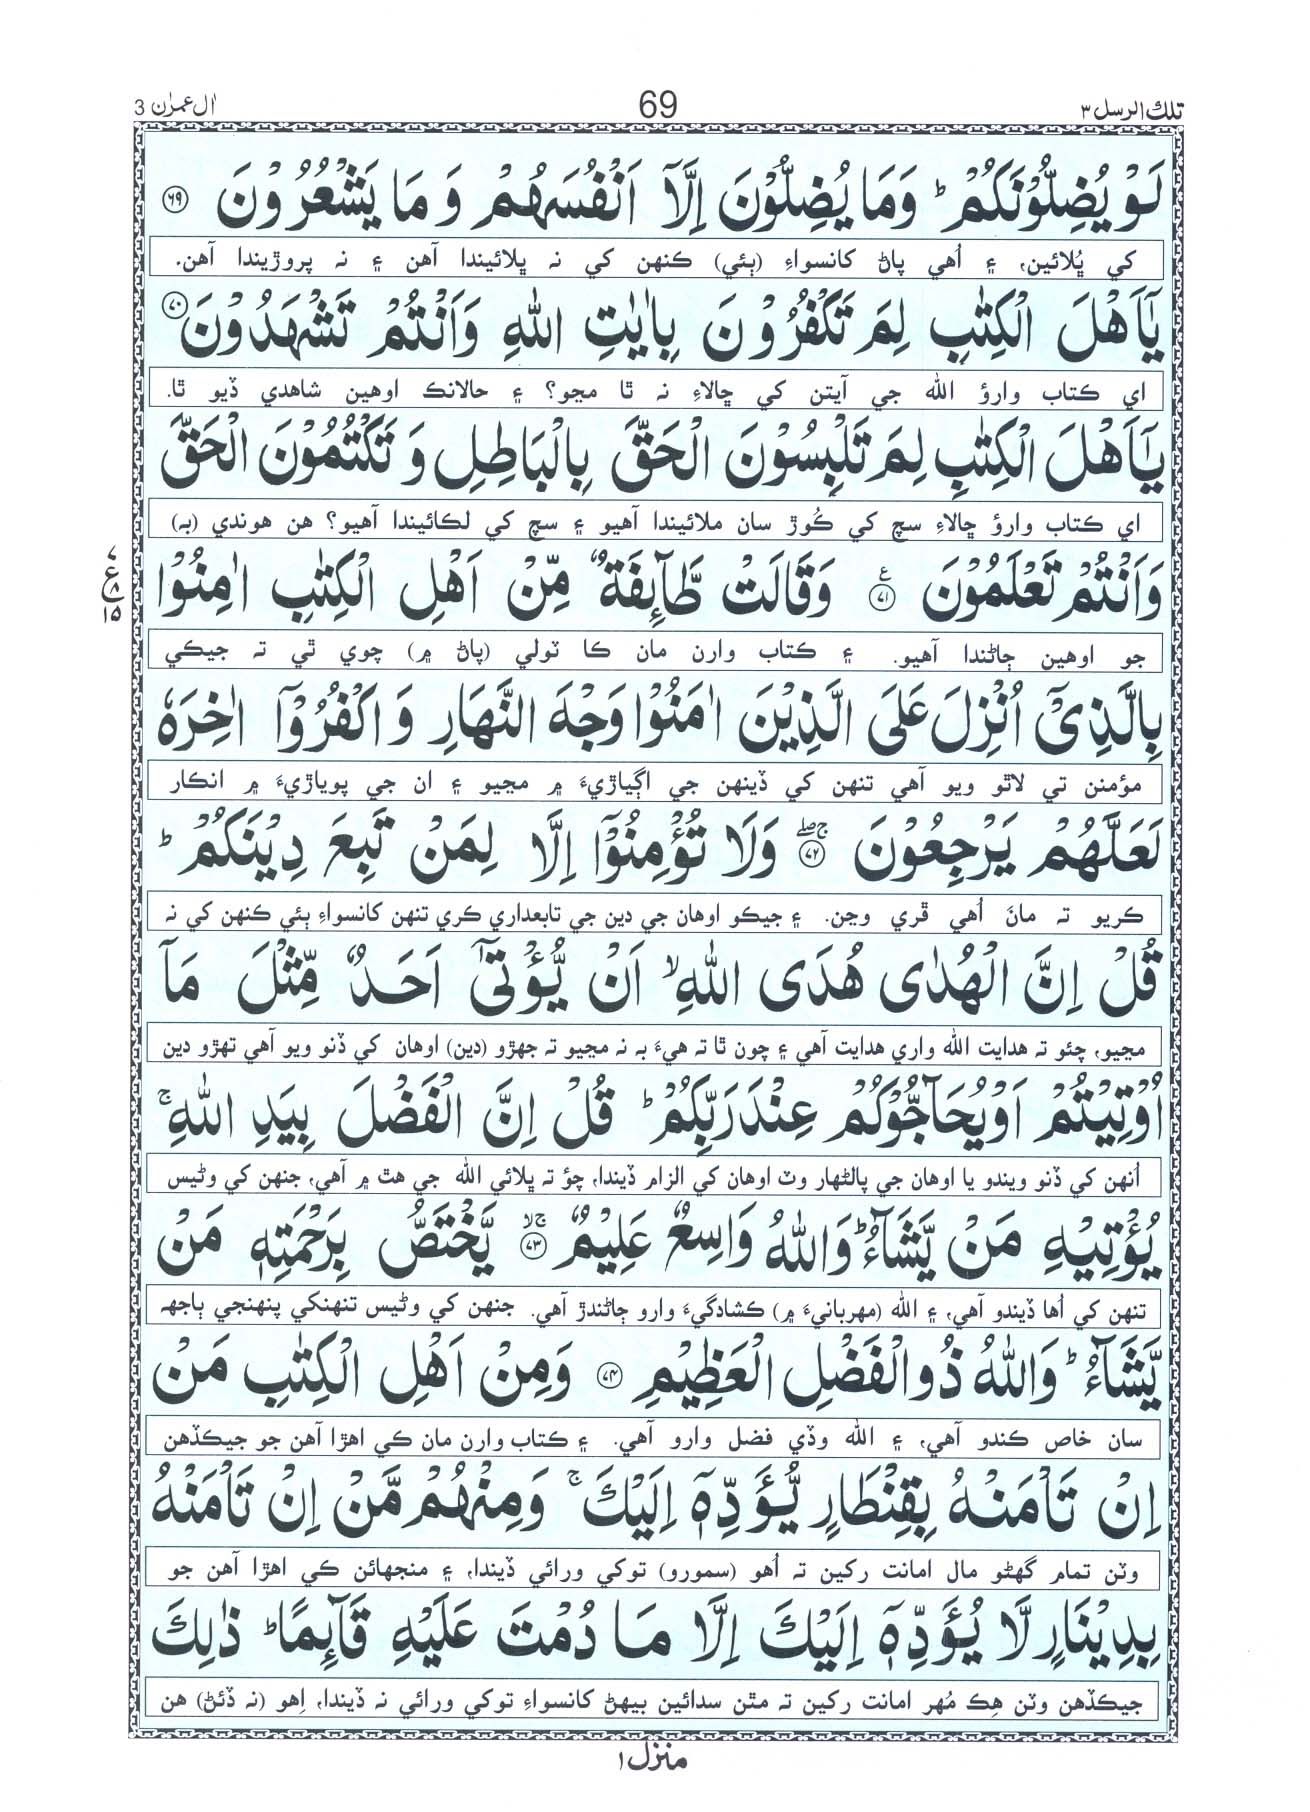 تلك الرسل ٣
69
اٰل عمرٰن 3
لَوْ يُضِلُّوْنَكُمْ ؕ وَمَا يُضِلُّوْنَ اِلَّاۤ اَنْفُسَهُمْ وَ مَا يَشْعُرُوْنَ ﴿۶۹﴾
کي ڀُلائين، ۽ اُهي پاڻ کانسواءِ (ٻئي) ڪنهن کي نہ ڀلائيندا آهن ۽ نہ پروڙيندا آهن.
يٰۤاَهْلَ الْكِتٰبِ لِمَ تَكْفُرُوْنَ بِاٰيٰتِ اللّٰهِ وَاَنْتُمْ تَشْهَدُوْنَ ﴿۷۰﴾
اي ڪتاب وارؤ الله جي آيتن کي ڇالاءِ نہ ٿا مڃو؟ ۽ حالانڪ اوهين شاهدي ڏيو ٿا.
يٰۤاَهْلَ الْكِتٰبِ لِمَ تَلْبِسُوْنَ الْحَقَّ بِالْبَاطِلِ وَ تَكْتُمُوْنَ الْحَقَّ
اي ڪتاب وارؤ ڇالاءِ سچ کي ڪُوڙ سان ملائيندا آهيو ۽ سچ کي لڪائيندا آهيو؟ هن هوندي (بہ)
وَاَنْتُمْ تَعْلَمُوْنَ ﴿۷۱﴾ ع وَقَالَتْ طَّآئِفَةٌ مِّنْ اَهْلِ الْكِتٰبِ اٰمِنُوْا
۷ ع ۸ ۱۵
جو اوهين ڄاڻندا آهيو. ۽ ڪتاب وارن مان ڪا ٽولي (پاڻ ۾) چوي ٿي تہ جيڪي
بِالَّذِيْۤ اُنْزِلَ عَلَى الَّذِيْنَ اٰمَنُوْا وَجْهَ النَّهَارِ وَ اكْفُرُوْۤا اٰخِرَهٗ
مؤمنن تي لاٿو ويو آهي تنهن کي ڏينهن جي اڳياڙيءَ ۾ مڃيو ۽ ان جي پوياڙيءَ ۾ انڪار
لَعَلَّهُمْ يَرْجِعُوْنَ ﴿۷۲﴾ ۚۖ وَلَا تُؤْمِنُوْۤا اِلَّا لِمَنْ تَبِعَ دِيْنَكُمْ ؕ
ڪريو تہ مانَ اُهي ڦري وڃن. ۽ جيڪو اوهان جي دين جي تابعداري ڪري تنهن کانسواءِ ٻئي ڪنهن کي نہ
قُلْ اِنَّ الْهُدٰى هُدَى اللّٰهِ ۙ اَنْ يُّؤْتٰۤى اَحَدٌ مِّثْلَ مَاۤ
مڃيو، چئو تہ هدايت الله واري هدايت آهي ۽ چون ٿا تہ هيءَ بہ نہ مڃيو تہ جهڙو (دين) اوهان کي ڏنو ويو آهي تهڙو دين
اُوْتِيْتُمْ اَوْ يُحَآجُّوْكُمْ عِنْدَ رَبِّكُمْ ؕ قُلْ اِنَّ الْفَضْلَ بِيَدِ اللّٰهِ ۚ
اُنهن کي ڏنو ويندو يا اوهان جي پالڻهار وٽ اوهان کي الزام ڏيندا، چؤ تہ ڀلائي الله جي هٿ ۾ آهي، جنهن کي وڻيس
يُؤْتِيْهِ مَنْ يَّشَآءُ ؕ وَاللّٰهُ وَاسِعٌ عَلِيْمٌ ﴿۷۳﴾ ۚۙ يَّخْتَصُّ بِرَحْمَتِهٖ مَنْ
تنهن کي اُها ڏيندو آهي، ۽ الله (مهربانيءَ ۾) ڪشادگيءَ وارو ڄاڻندڙ آهي. جنهن کي وڻيس تنهنکي پنهنجي ٻاجهہ
يَّشَآءُ ؕ وَاللّٰهُ ذُو الْفَضْلِ الْعَظِيْمِ ﴿۷۴﴾ وَمِنْ اَهْلِ الْكِتٰبِ مَنْ
سان خاص ڪندو آهي، ۽ الله وڏي فضل وارو آهي. ۽ ڪتاب وارن مان ڪي اهڙا آهن جو جيڪڏهن
اِنْ تَاْمَنْهُ بِقِنْطَارٍ يُّؤَدِّهٖۤ اِلَيْكَ ۚ وَمِنْهُمْ مَّنْ اِنْ تَاْمَنْهُ
وٽن تمام گهڻو مال امانت رکين تہ اُهو (سمورو) توکي ورائي ڏيندا، ۽ منجهائن ڪي اهڙا آهن جو
بِدِيْنَارٍ لَّا يُؤَدِّهٖۤ اِلَيْكَ اِلَّا مَا دُمْتَ عَلَيْهِ قَآئِمًا ؕ ذٰلِكَ
جيڪڏهن وٽن هِڪ مُهر امانت رکين تہ مٿن سدائين بيهڻ کانسواءِ توکي ورائي نہ ڏيندا، اِهو (نہ ڏئڻ) هن
منزل ١